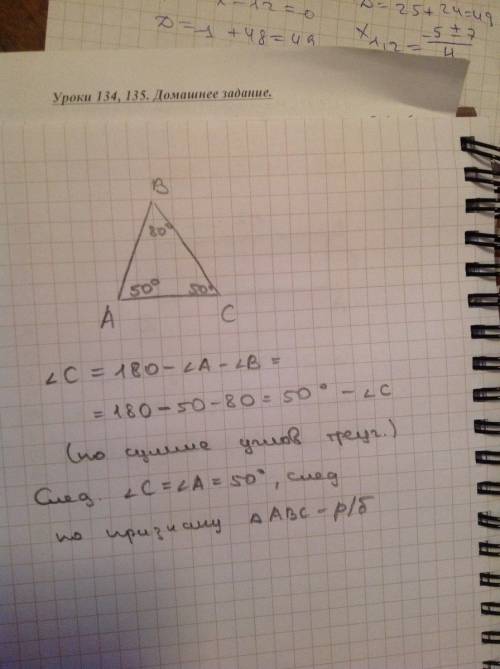 x - 12 = 0
D = 25 + 24 = 49
D = 1 + 48 = 49
x1,2 = -5 ± 7
4
Уроки 134, 135. Домашнее задание.
B
80°
50°
50°
A
C
∠C = 180 - ∠A - ∠B =
= 180 - 50 - 80 = 50° - ∠C
(по сумме углов треуг.)
След. ∠C = ∠A = 50°, след
по признаку △ABC - р/б